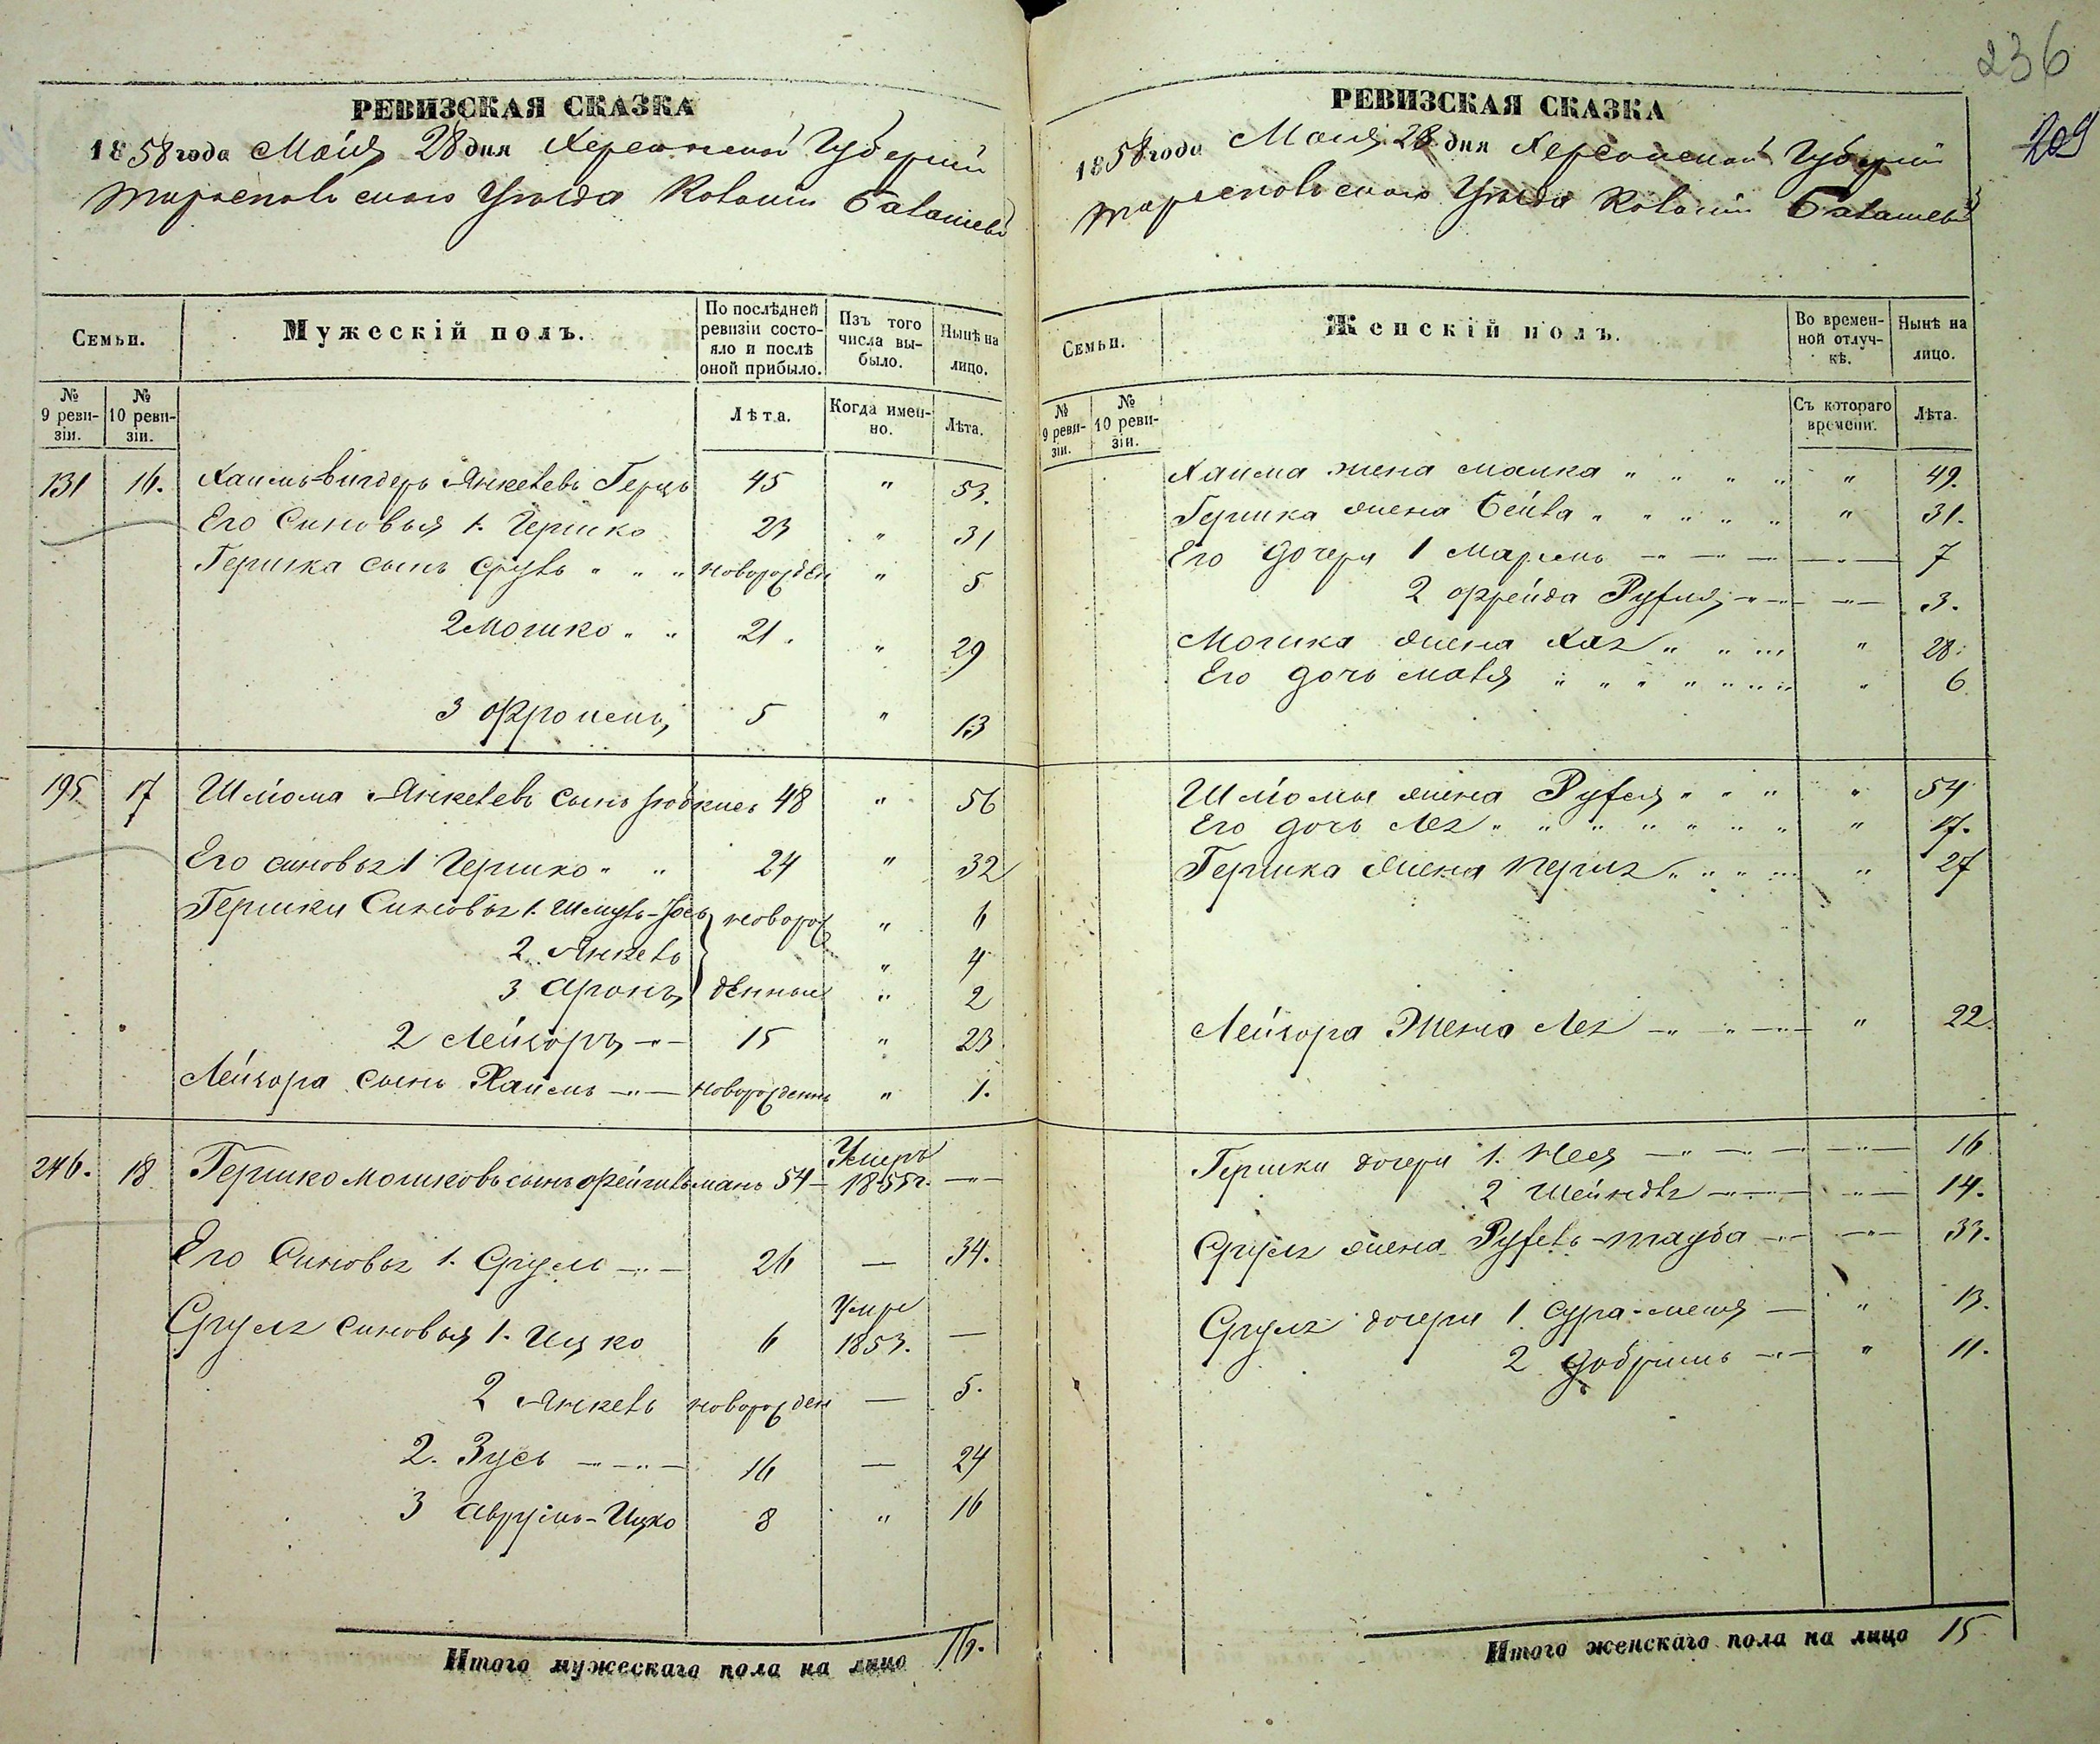 236
209
РЕВИЗСКАЯ СКАЗКА
1858 года Маія 28 дня Херсонской Губерніи
Тираспольскаго Уѣзда Колоніи
Семьи.
Мужескій полъ.
По послѣдней ревизіи состояло и послѣ оной прибыло.
Изъ того числа выбыло.
Нынѣ на лицо.
№ 9 ревизіи.
№ 10 ревизіи.
Лѣта.
Когда именно.
Лѣта.
131 16. Хаимъ-Вигдеръ Янкелевъ Герцъ 45 " 53.
Его Сыновья 1. Гершко 23 " 31
Гершка сынъ Сруль " " " новорожден " 5
2 Мошко " " 21. " 29
3 Фроимъ, 5 " 13
195 17 Шлйома Янкелевъ сынъ 48 " 56
Его сыновья 1 Гершко " " 24 " 32
Гершки Сыновья 1. Шмуль-Іось новорож " 6
2 Янкель " 4
3 Аронъ денные " 2
2 Лейзоръ 15 " 23
Лейзора сынъ Хаимъ новорожденъ " 1.
246. 18 Гершко Мошковъ сынъ Фейгильманъ 54 Умеръ 1855 г. —
Его Сыновья 1. Сруль 26 — 34.
Сруля сыновья 1. Ицко 6 Умре 1853. —
2 Янкель новорожден — 5.
2. Зусь 16 — 24
3 Аврумъ-Ицко 8 " 16
Итого мужескаго пола на лицо 16.
РЕВИЗСКАЯ СКАЗКА
1858 года Маія 28 дня Херсонской Губерніи
Тираспольскаго Уѣзда Колоніи
Семьи.
Женскій полъ.
Во временной отлучкѣ.
Нынѣ на лицо.
№ 9 ревизіи.
№ 10 ревизіи.
Съ котораго времени.
Лѣта.
Хаима жена Малка " " " " " 49.
Гершка жена Бейла " " " " " " 31.
Его дочери 1 Марьемъ 7
2 Фрейда Рухля 3.
Мошка жена Хая " " " " 28.
Его дочь Маля " " " " " " " " 6
Шлйомы жена Рухля " " " " 54
Его дочь Лея " " " " " " " " 17.
Гершка жена Перля " " " " " 27
Лейзора Жена Лея " 22.
Гершки дочери 1. Нехя 16
2 Шейндля 14.
Сруля жена Рухель-Тауба 33.
Сруля дочери 1 Сура-Меня " 13.
2 Добришъ " 11.
Итого женскаго пола на лицо 15